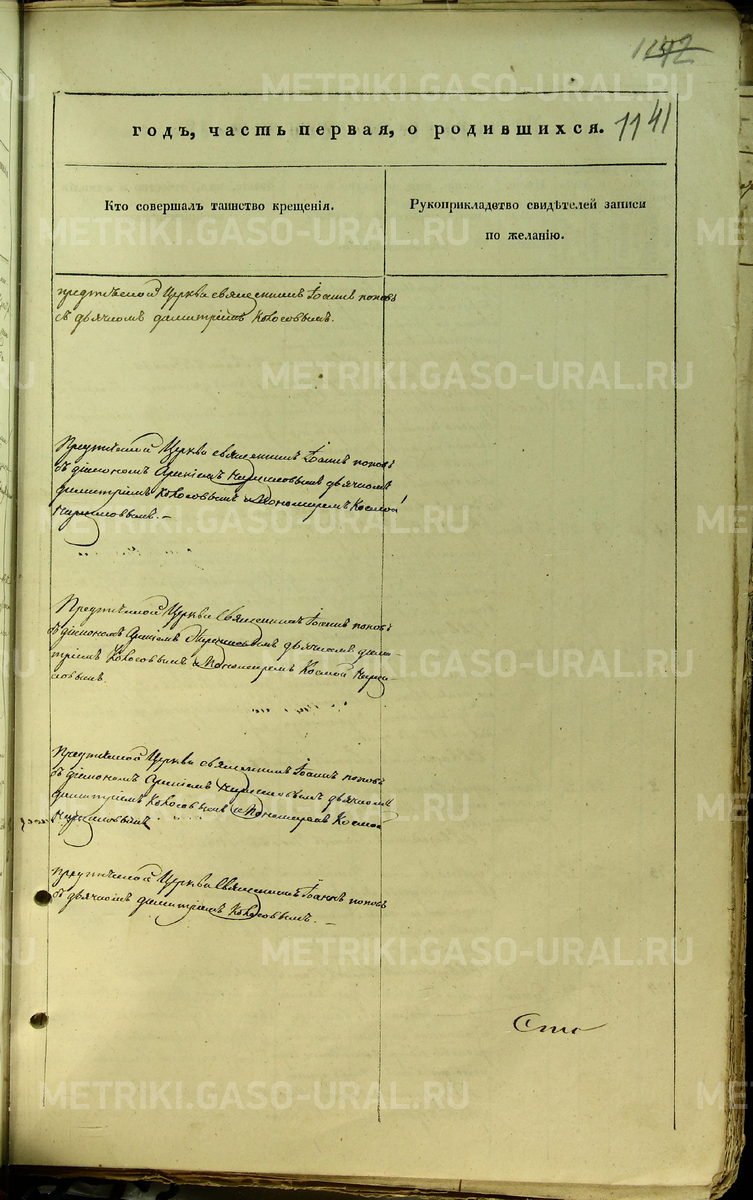 1142
METRIKI.GASO-URAL.RU
годъ, часть первая, о родившихся.
1141
Кто совершалъ таинство крещенія.
Рукоприкладство свидѣтелей записи
по желанію.
предтѣчной Церкви священникъ Іоаннъ поповъ
съ дьячкомъ димитріемъ Колосовымъ.
Предтѣчной Церкви священникъ Іоаннъ поповъ
съ діакономъ дьячкомъ
димитріемъ Колосовымъ и Пономаремъ Космой
Предтѣчной Церкви Священникъ Іоаннъ поповъ
съ діакономъ дьячкомъ дими-
тріемъ Колосовымъ и Пономаремъ Космой
Предтѣчной Церкви священникъ Іоаннъ поповъ
съ діакономъ дьячкомъ
димитріемъ Колосовымъ и Пономаремъ Космой
предтѣчной Церкви Священникъ Іоаннъ поповъ
съ дьячкомъ димитріемъ Колосовымъ.
Сто